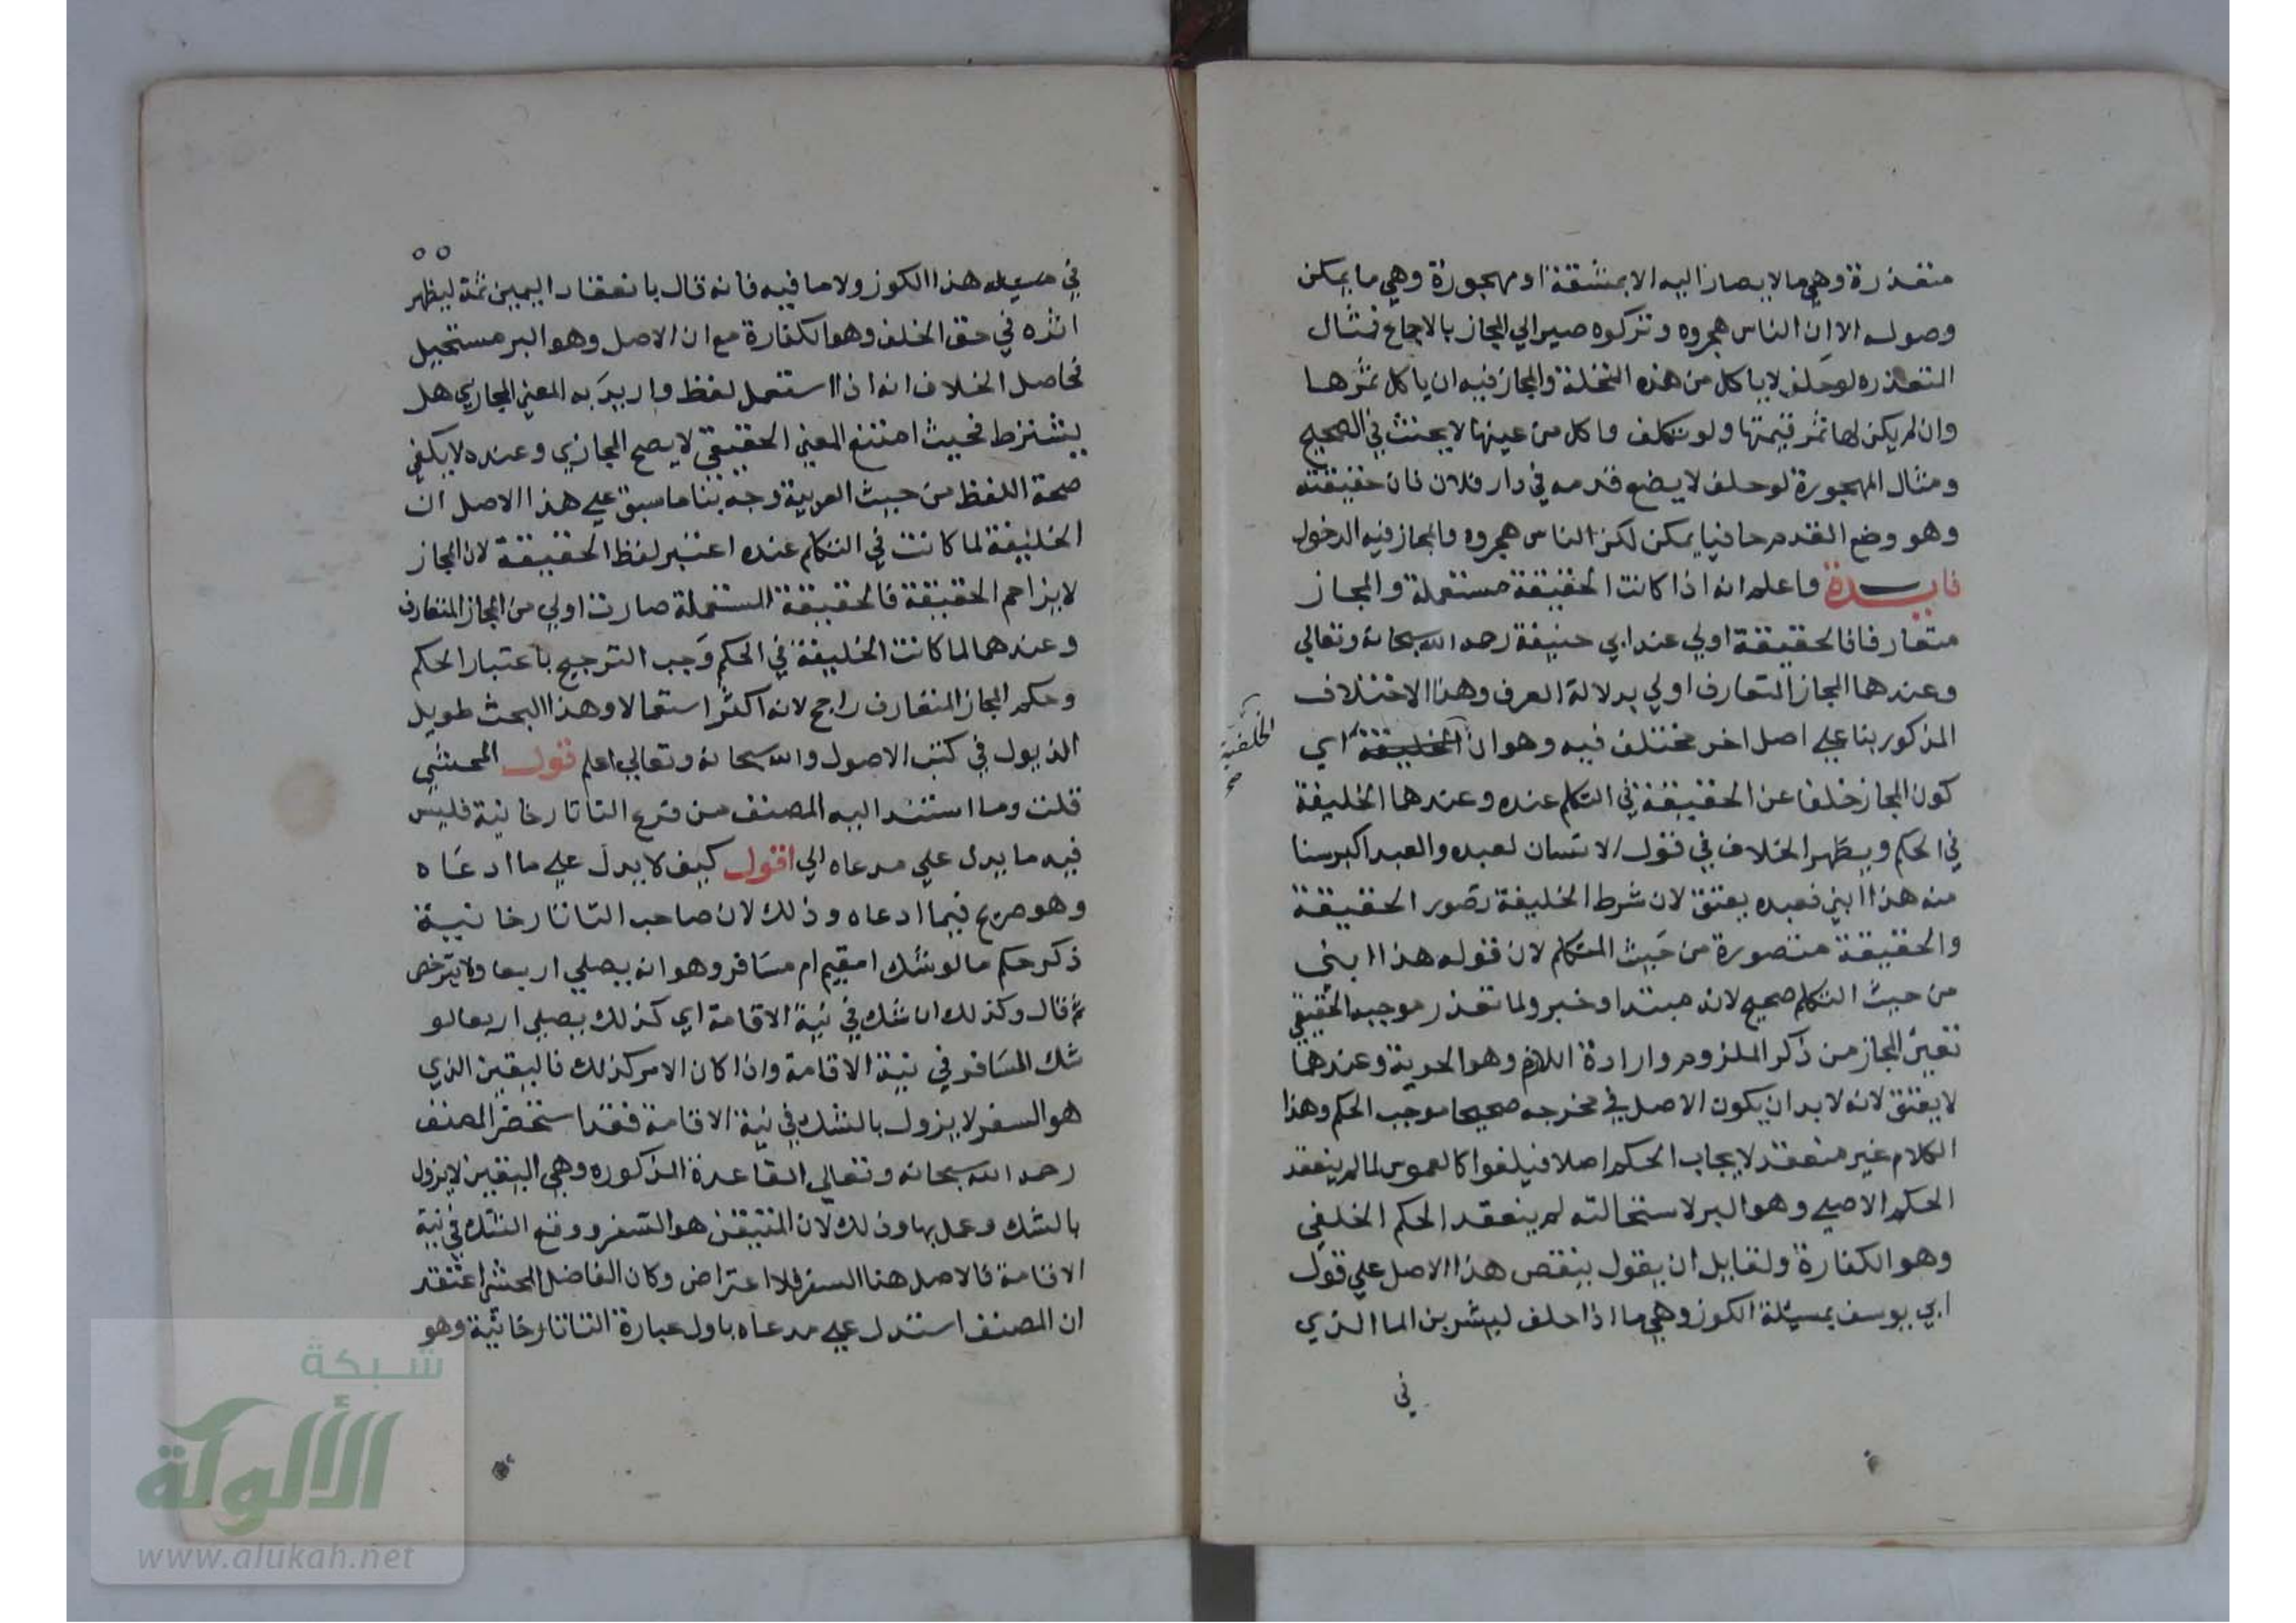 متعذرة وهي ما لا يصار اليه الا بمشقة او مهجورة وهي ما يمكن
وصوله الا ان الناس هجروه وتركوه صير الي المجاز بالاجماع فمثال
المتعذره لو حلف لا ياكل من هذه النخلة والمجاز فيه ان ياكل ثمرها
وان لم يكن لها ثمر قيمتها ولو تكلف واكل من عينها لا يحنث في الصحيح
ومثال المهجورة لو حلف لا يضع قدمه في دار فلان فان حقيقته
وهو وضع القدم حافيا يمكن لكن الناس هجروه والمجاز فيه الدخول
فايدة واعلم انه اذا كانت الحقيقة مستعملة والمجاز
متعارفا فالحقيقة اولي عند ابي حنيفة رحمه الله سبحانه وتعالي
وعندهما المجاز المتعارف اولي بدلالة العرف وهذا الاختلاف
المذكور بنا علي اصل اخر مختلف فيه وهو ان الخليفة اي
الخلفية
صح
كون المجاز خلفا عن الحقيقة في التكلم عنده وعندهما الخليفة
في الحكم ويظهر الخلاف في قول الانسان لعبده والعبد اكبر سنا
منه هذا ابني فعبده يعتق لان شرط الخليفة تصور الحقيقة
والحقيقة متصورة من حيث المتكلم لان قوله هذا ابني
من حيث التكلم صحيح لانه مبتدا وخبر ولما تعذر موجبه الحقيقي
تعين المجاز من ذكر الملزوم وارادة اللازم وهو الحرية وعندهما
لا يعتق لانه لا بد ان يكون الاصل في مخرجه صحيحا موجب الحكم وهذا
الكلام غير منعقد لايجاب الحكم اصلا فيلغوا كالغموس لما لم ينعقد
الحكم الاصلي وهو البر لاستحالته لم ينعقد الحكم الخلفي
وهو الكفارة ولقايل ان يقول ينقص هذا الاصل علي قول
ابي يوسف بمسيلة الكوز وهي ما اذا حلف ليشربن الما الذي
في
٥٥
في مسيله هذا الكوز ولا ما فيه فانه قال بانعقاد اليمين ثمة ليظهر
اثره في حق الخلف وهو الكفارة مع ان الاصل وهو البر مستحيل
فحاصل الخلاف انه اذا استعمل لفظ واريد به المعني المجازي هل
يشترط فحيث امتنع المعني الحقيقي لا يصح المجازي وعنده لا يكفي
صحة اللفظ من حيث العربية وجه بنا ما سبق علي هذا الاصل ان
الخليفة لما كانت في التكلم عنده اعتبر لفظ الحقيقة لان المجاز
لا يزاحم الحقيقة فالحقيقة المستعملة صارت اولي من المجاز المتعارف
وعندهما لما كانت الخليفة في الحكم وجب الترجيح باعتبار الحكم
وحكم المجاز المتعارف راجح لانه اكثر استعمالا وهذا البحث طويل
الذيول في كتب الاصول والله سبحانه وتعالي اعلم قوله المحشي
قلت وما استند اليه المصنف من فرع التاتارخانية فليس
فيه ما يدل علي مدعاه الي اقول كيف لا يدل علي ما ادعاه
وهو صريح فيما ادعاه وذلك لان صاحب التاتارخانية
ذكر حكم ما لو شك امقيم ام مسافر وهو انه يصلي اربعا ولا يترخص
ثم قال وكذلك ان شك في نية الاقامة اي كذلك يصلي اربعا لو
شك المسافر في نية الاقامة واذا كان الامر كذلك فاليقين الذي
هو السفر لا يزول بالشك في نية الاقامة فقد استحضر المصنف
رحمه الله سبحانه وتعالي القاعدة المذكوره وهي اليقين لا يزول
بالشك وعمل بها وذلك لان المتيقن هو السفر ووقع الشك في نية
الاقامة فالاصل هنا السفر فلا اعتراض وكان الفاضل المحشي اعتقد
ان المصنف استدل علي مدعاه باول عبارة التاتارخانية وهو
شبكة
الألوكة
www.alukah.net